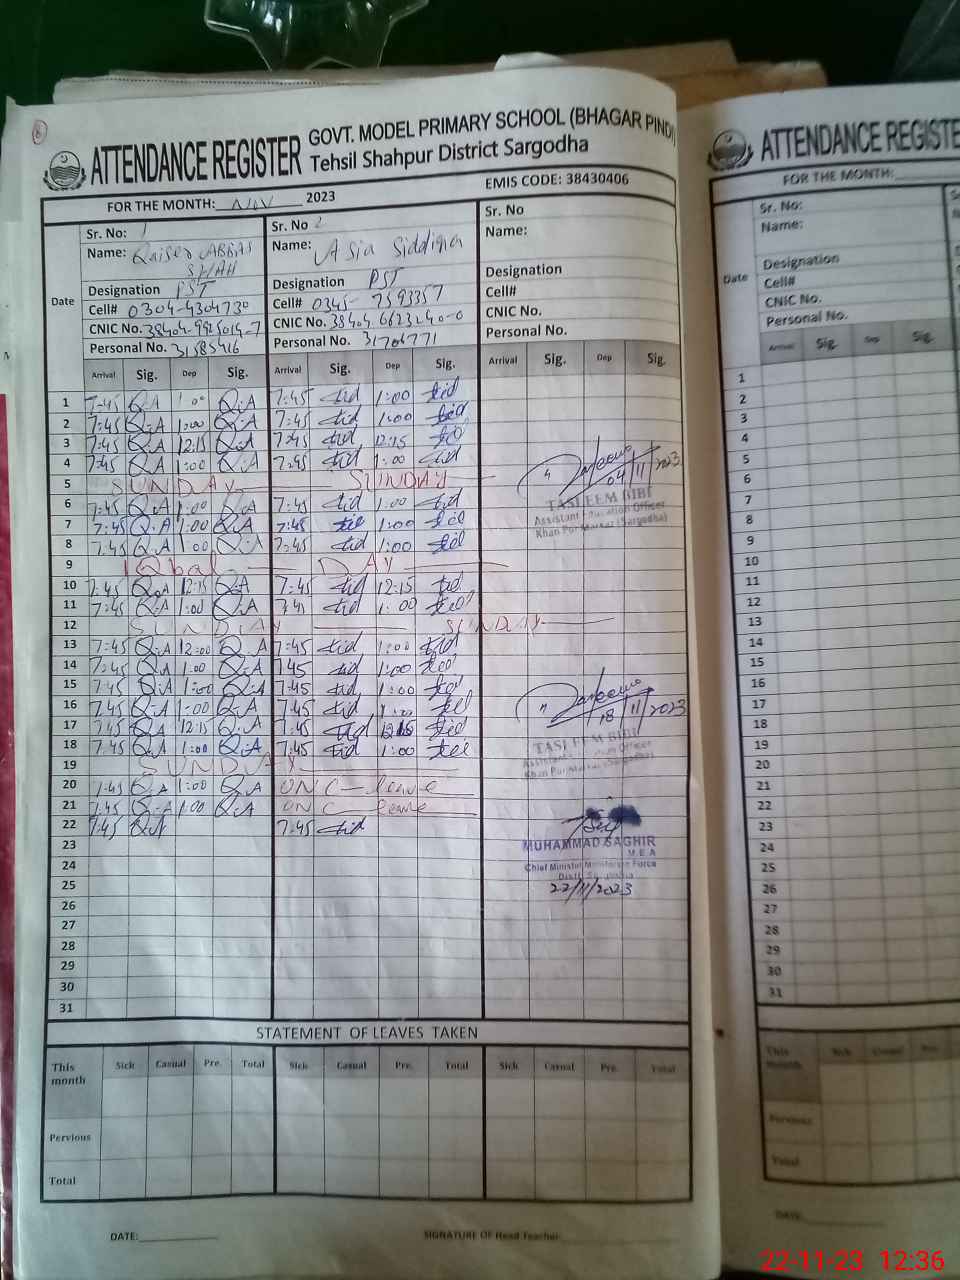 ATTENDANCE REGISTER GOVT. MODEL PRIMARY SCHOOL (BHAGAR PINDI)
Tehsil Shahpur District Sargodha
FOR THE MONTH: NOV 2023 EMIS CODE: 38430406
Sr. No: 1 Sr. No 2 Sr. No
Name: Qaiser ABBAS SHAH Name: Asia Siddiqa Name:
Designation PST Designation PST Designation
Cell# 0304-4304730 Cell# 0345-7593357 Cell#
CNIC No. CNIC No. CNIC No.
Personal No. 31585416 Personal No. 31704771 Personal No.
Date Arrival Sig. Dep Sig. Arrival Sig. Dep Sig. Arrival Sig. Dep Sig.
1 7:45 Q.A 1:00 Q.A 7:45 1:00
2 7:45 Q.A 1:00 Q.A 7:45 1:00
3 7:45 Q.A 12:15 Q.A 7:45 12:15
4 7:45 Q.A 1:00 Q.A 7:45 1:00
5 SUNDAY SUNDAY
6 7:45 Q.A 1:00 Q.A 7:45 1:00
7 7:45 Q.A 1:00 Q.A 7:45 1:00
8 7:45 Q.A 1:00 Q.A 7:45 1:00
9 Iqbal DAY
10 7:45 Q.A 12:15 Q.A 7:45 12:15
11 7:45 Q.A 1:00 Q.A 1:00
12 SUNDAY SUNDAY
13 7:45 Q.A 12:00 Q.A 7:45 1:00
14 7:45 Q.A 1:00 Q.A 7:45 1:00
15 7:45 Q.A 1:00 Q.A 7:45 1:00
16 7:45 Q.A 1:00 Q.A 7:45 1:00
17 7:45 Q.A 12:15 Q.A 7:45 12:15
18 7:45 Q.A 1:00 Q.A 7:45 1:00
19 SUNDAY
20 7:45 Q.A 1:00 Q.A ON C-leave
21 7:45 Q.A 1:00 Q.A ON C-leave
22 7:45 Q.A 7:45
23
24
25
26
27
28
29
30
31
04/11/2023
TASLEEM BIBI
Assistant Education Officer
Khan Pur Markaz (Sargodha)
18/11/2023
TASLEEM BIBI
Assistant Education Officer
Khan Pur Markaz (Sargodha)
MUHAMMAD SAGHIR
M.E.A
Chief Minister Monitoring Force
Distt. Sargodha
22/11/2023
STATEMENT OF LEAVES TAKEN
This month Sick Casual Pre. Total Sick Casual Pre. Total Sick Casual Pre. Total
Pervious
Total
DATE: SIGNATURE OF Head Teacher
ATTENDANCE REGISTE
FOR THE MONTH:
Sr. No:
Name:
Designation
Cell#
CNIC No.
Personal No.
Date Arrival Sig. Dep Sig.
1
2
3
4
5
6
7
8
9
10
11
12
13
14
15
16
17
18
19
20
21
22
23
24
25
26
27
28
29
30
31
This month Sick Casual Pre.
Pervious
Total
DATE:
22-11-23 12:36